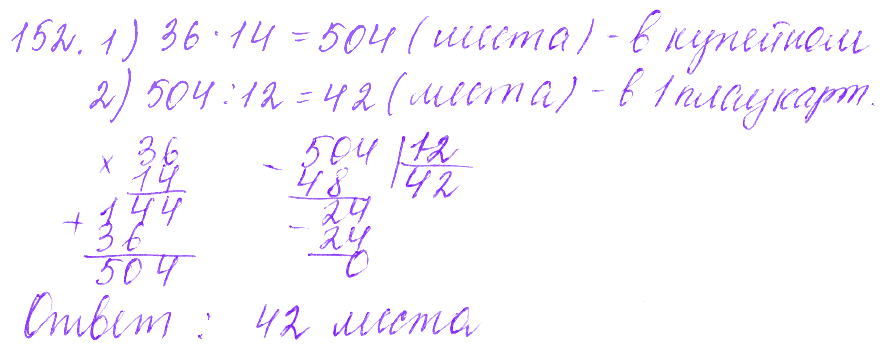 152. 1) 36 · 14 = 504 (места) - в купейном
2) 504 : 12 = 42 (места) - в 1 плацкарт.
× 36
14
+ 144
36
504
- 504 | 12
48 42
- 24
24
0
Ответ : 42 места